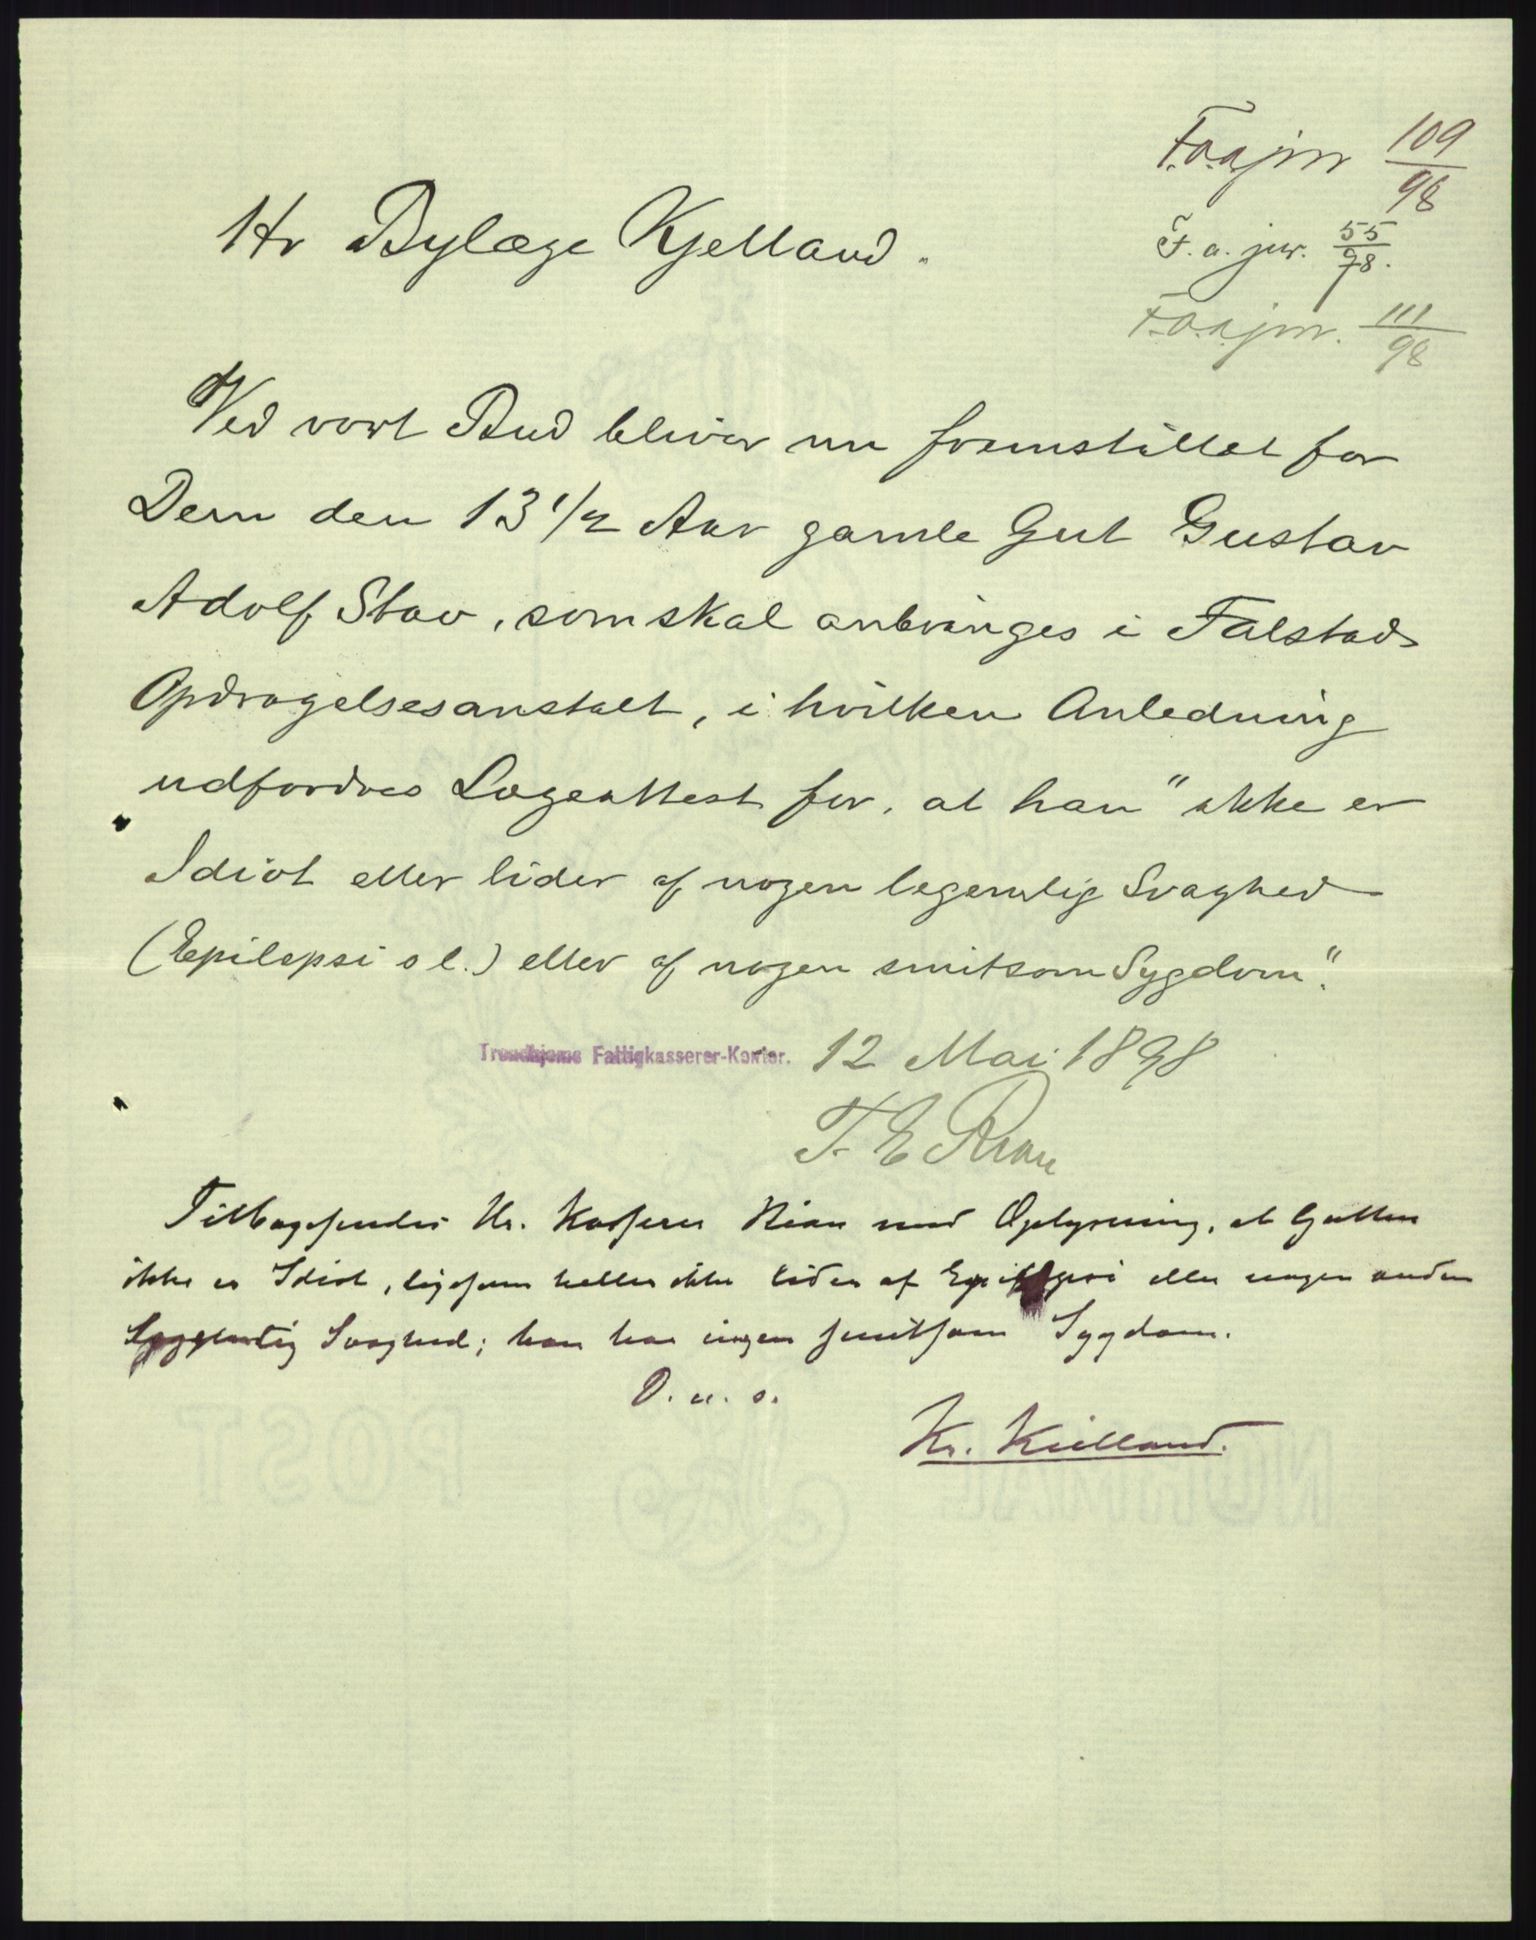 F.a.ajnr 109/98
Hr Bylæge Kjelland.
F. a. jnr. 55/98.
F.a.ajnr. 111/98
Ved vort Bud bliver nu fremstillet for
Dem den 13 1/2 Aar gamle Gut Gustav
Adolf Stav, som skal anbringes i Falstad
Opdragelsesanstalt, i hvilken Anledning
udfordres Lægeattest for, at han "ikke er
Idiot eller lider af nogen legemlig Svaghed
(Epilepsi o l.) eller af nogen smitsom Sygdom".
Trondhjems Fattigkasserer-Kontor. 12 Mai 1898
T. E Rian
Tilbagesendes Hr. Kasserer Rian med Oplysning, at Gutten
ikke er Idiot, ligesom heller ikke lider af Epilepsi eller nogen anden
legemlig Svaghed; han har ingen smitsom Sygdom.
D. u. s.
Kr. Kielland.
NORMAL POST